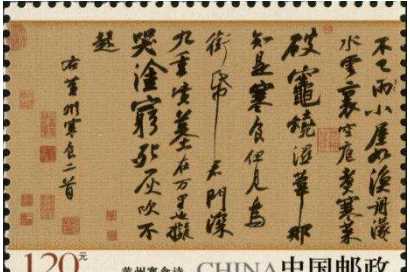 不已雨小屋如漁舟濛
水雲裏空庖煮寒菜
破竈燒濕葦那
知是寒食但見烏
銜帋君門深
九重墳墓在万里也擬
哭塗窮死灰吹不
起
右黃州寒食二首
120元
黄州寒食诗
CHINA 中国邮政